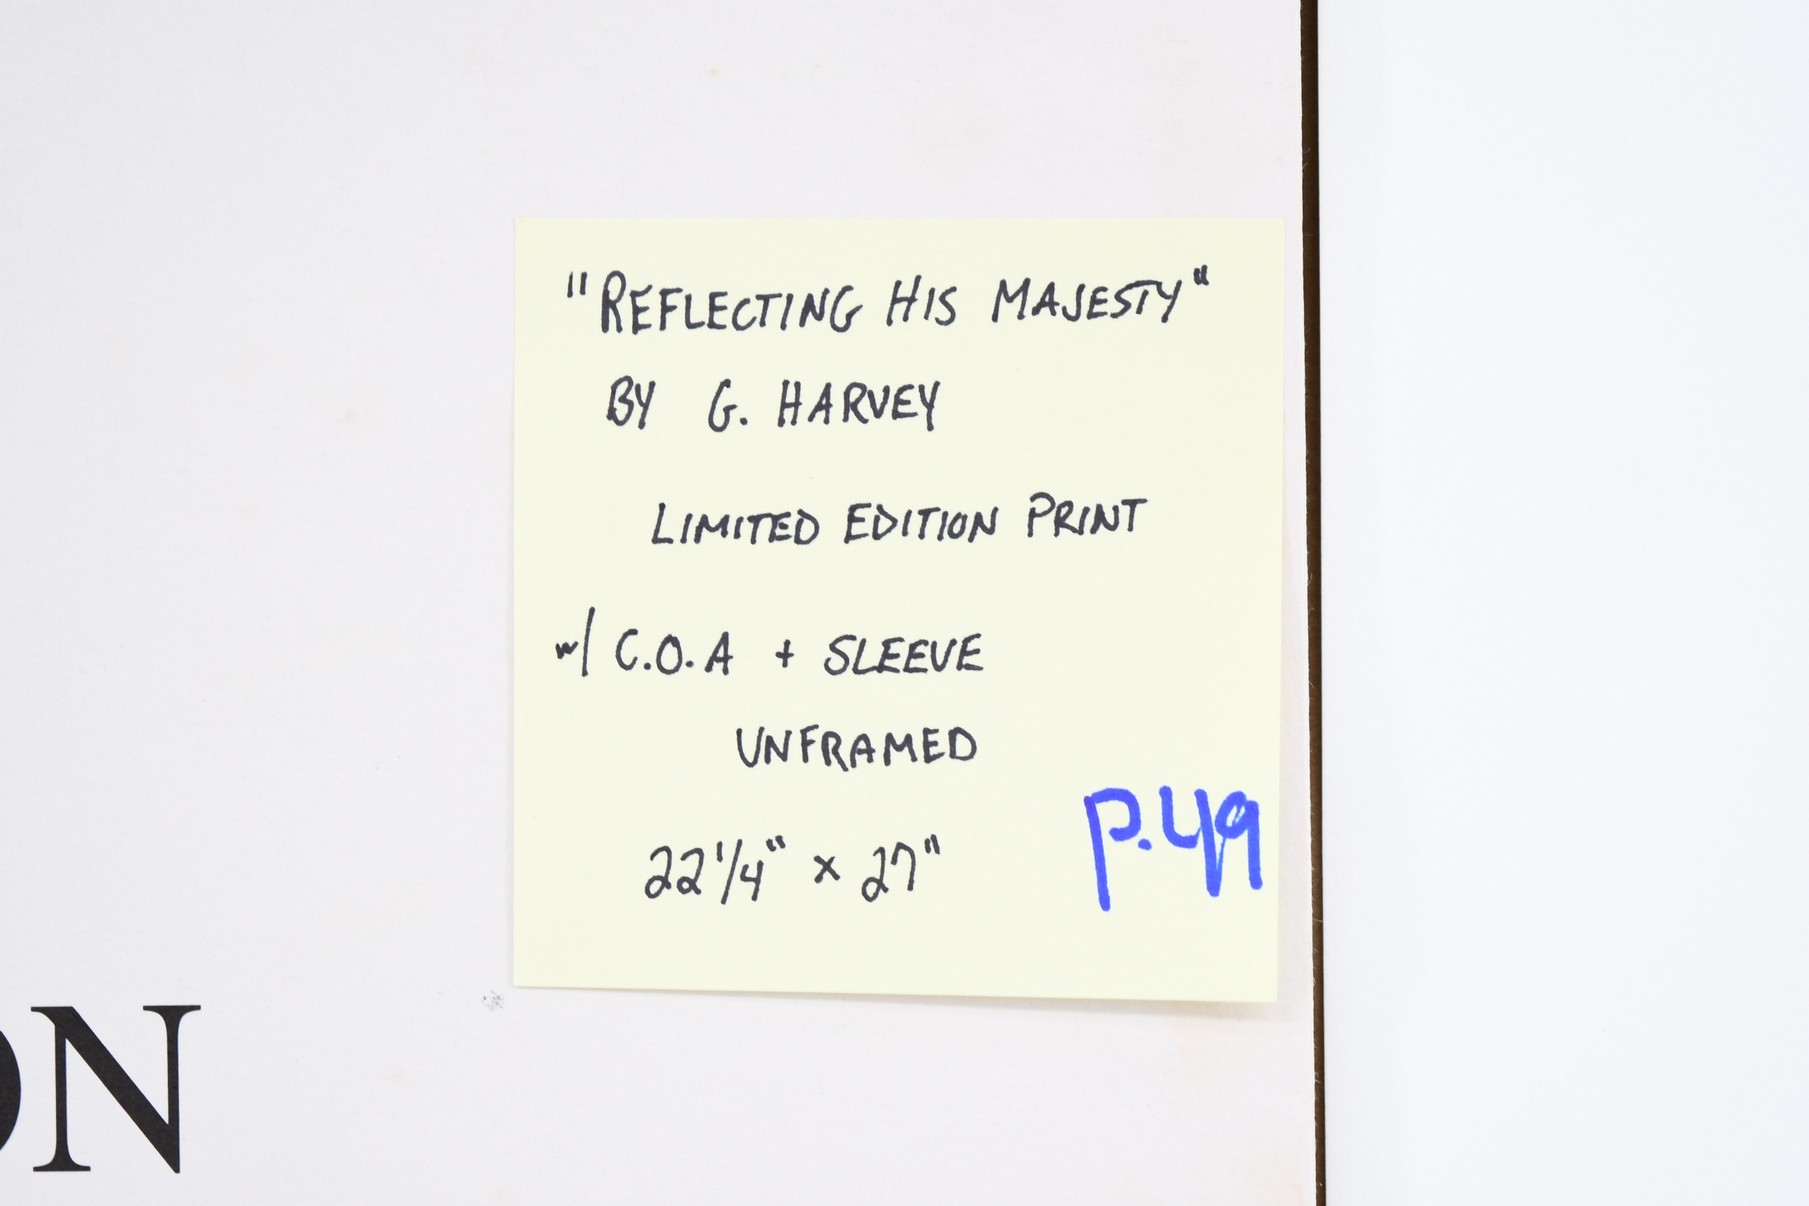 "REFLECTING HIS MAJESTY"
BY G. HARVEY
LIMITED EDITION PRINT
w/ C.O.A + SLEEVE
UNFRAMED
22 1/4" x 27"
P.49
ON